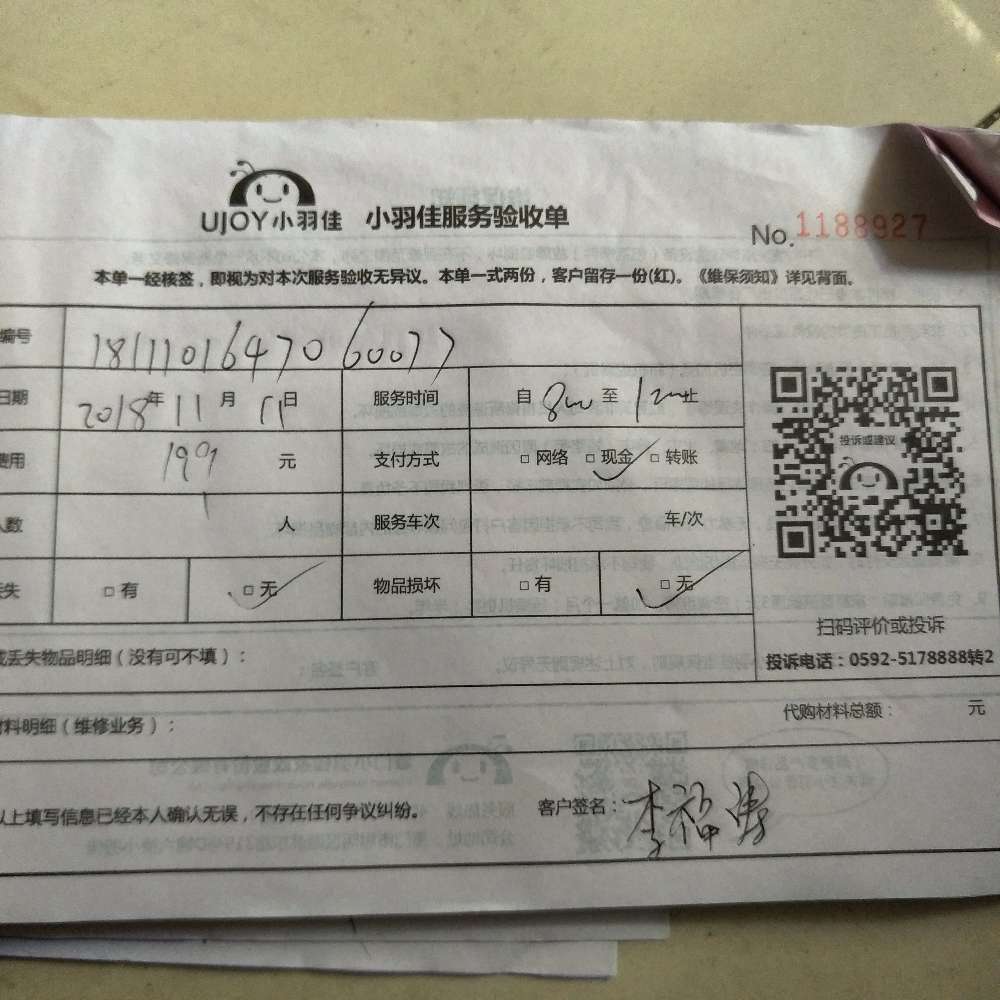 UJOY小羽佳 小羽佳服务验收单
No.1188927
本单一经核签，即视为对本次服务验收无异议。本单一式两份，客户留存一份(红)。《维保须知》详见背面。
编号 1811101647060077
日期 2018年11月11日 服务时间 自800至1200止
费用 199元 支付方式 □网络 □现金 □转账
投诉或建议
人数 1人 服务车次 车/次
失 □有 □无 物品损坏 □有 □无
扫码评价或投诉
或丢失物品明细（没有可不填）：
投诉电话：0592-5178888转2
材料明细（维修业务）： 代购材料总额： 元
以上填写信息已经本人确认无误，不存在任何争议纠纷。 客户签名：李福